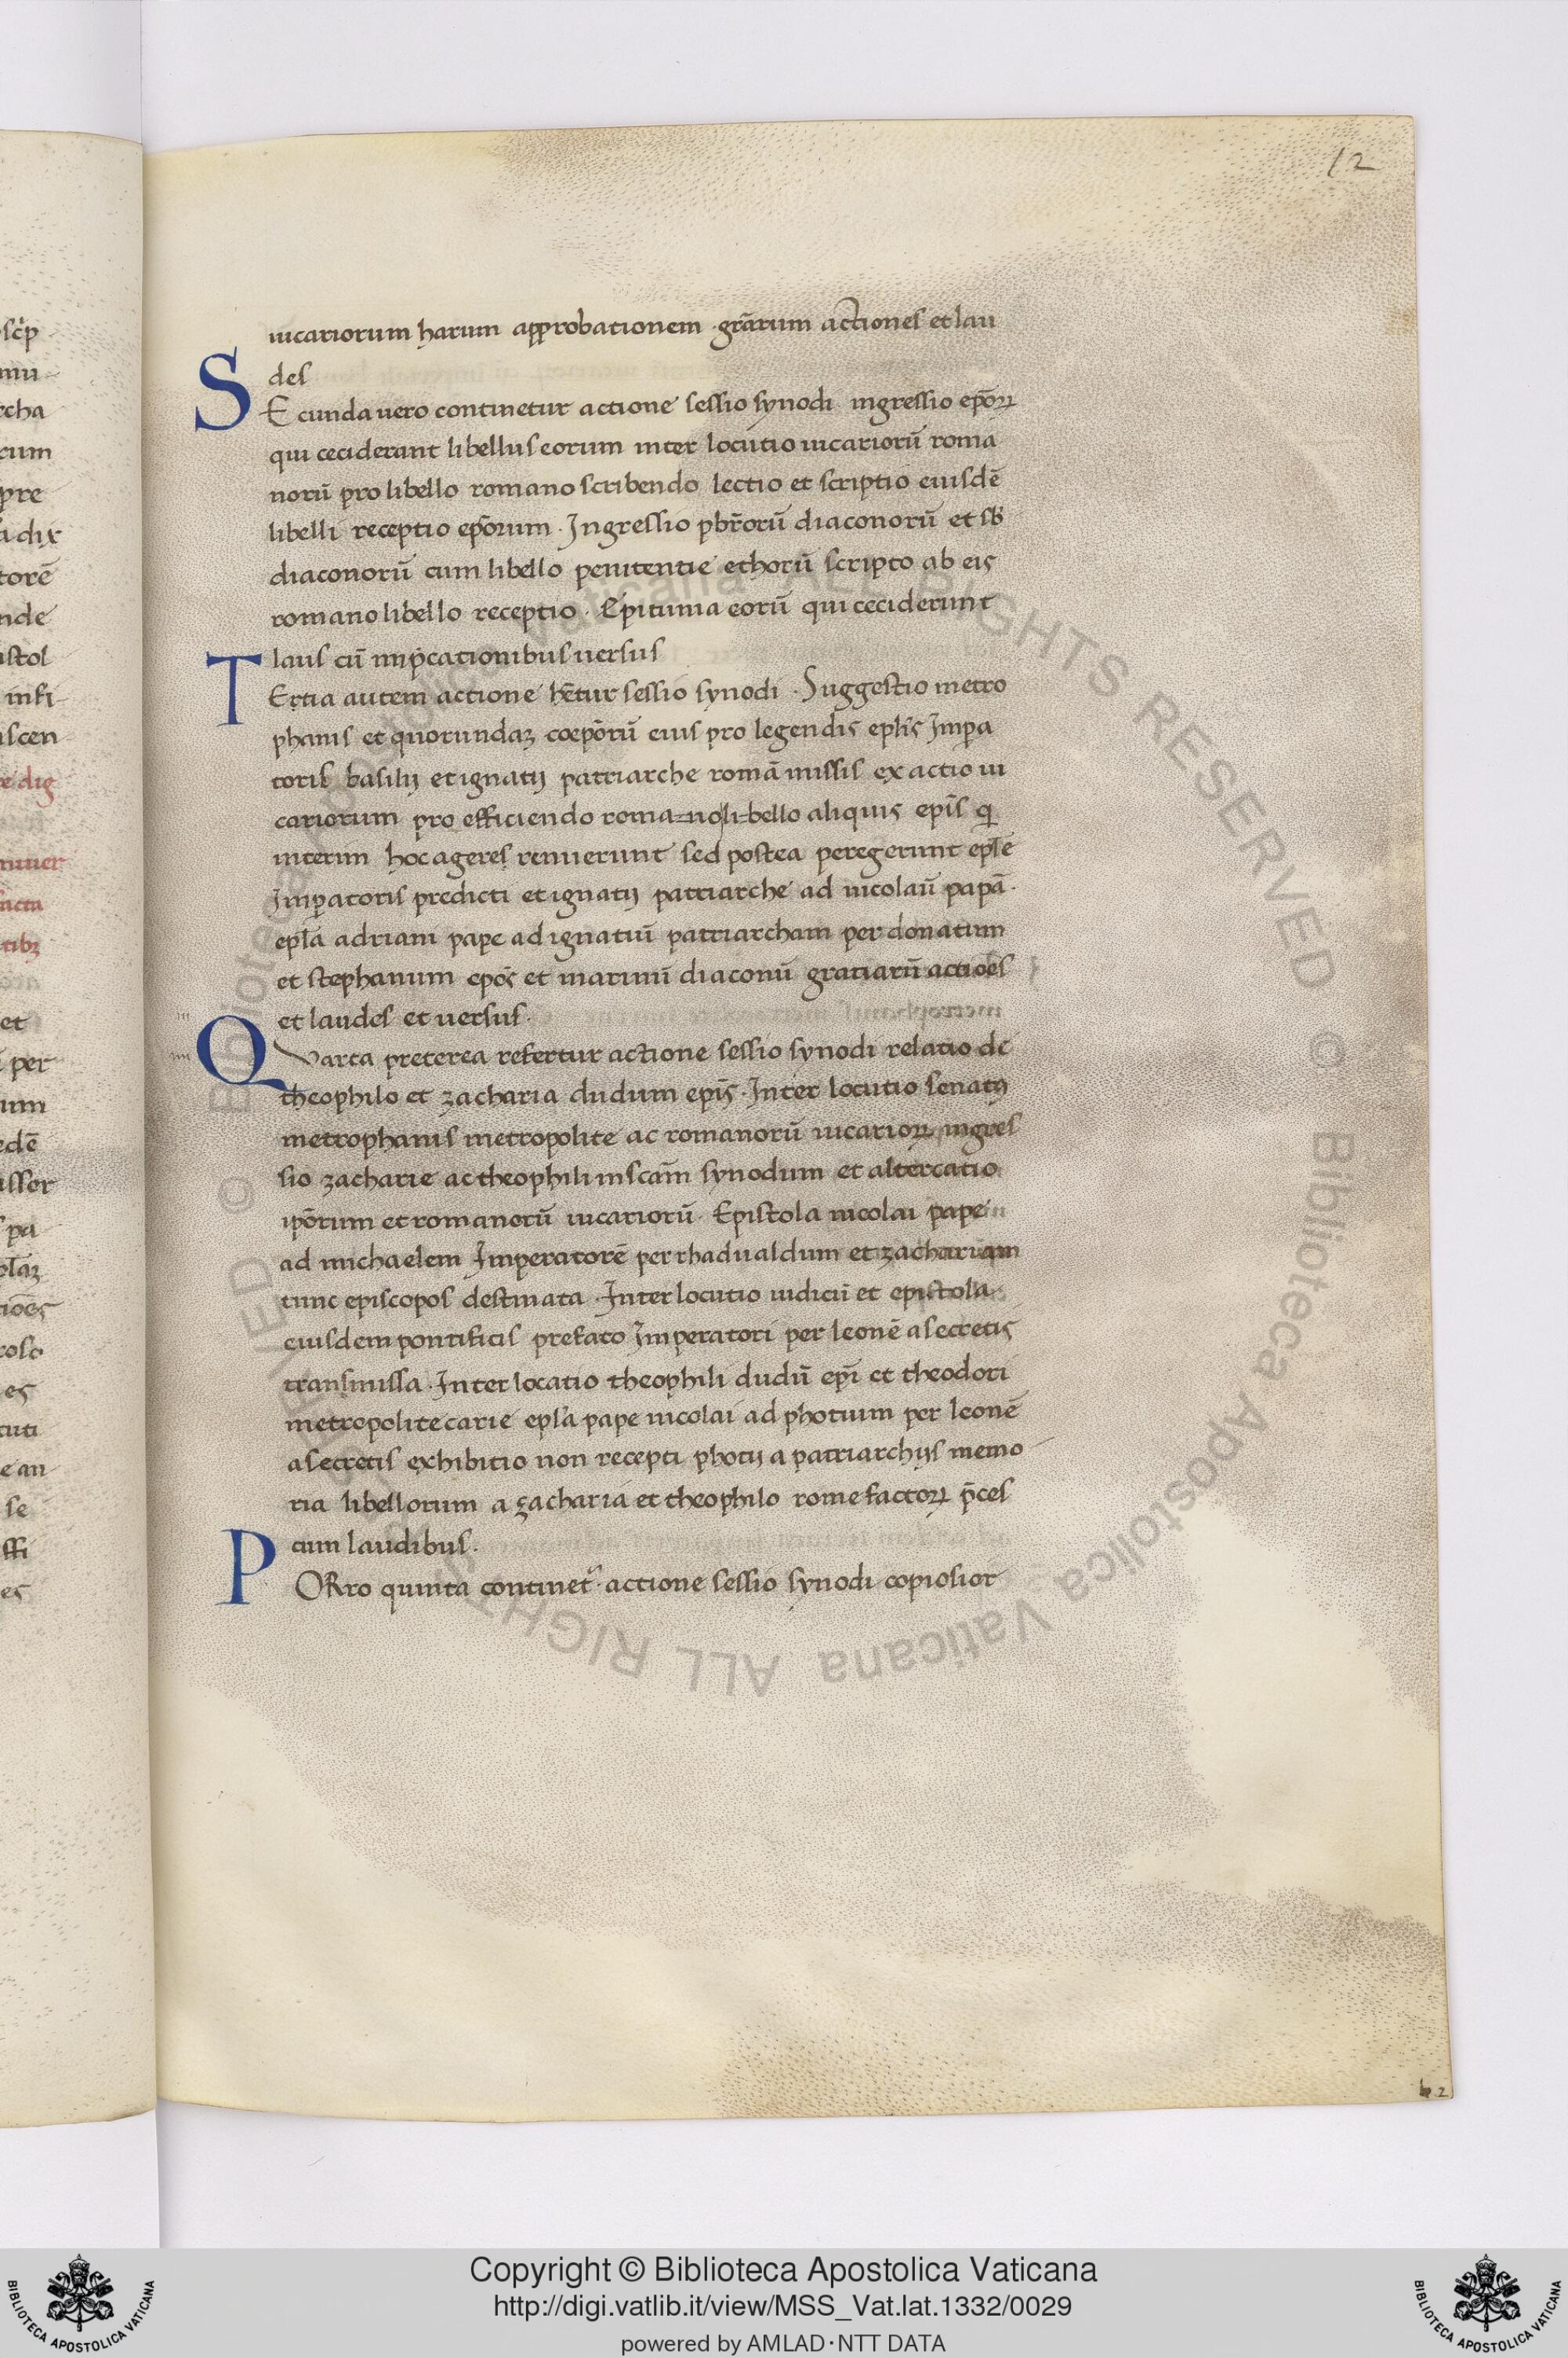 12
uicariorum harum approbationem · grãrum actiones et lau
des
SEcunda uero continetur actione sessio synodi ingressio epõꝝ
qui ceciderant libellus eorum inter locutio uicariorũ roma
norũ pro libello romano scribendo lectio et scriptio eiusdẽ
libelli receptio ep̃orum · Ingressio pbr̃orũ diaconorũ et sb̃
diaconorũ cum libello penitentie et horũ scripto ab eis
romano libello receptio · Epitimia eorũ qui ceciderunt
laus cũ imp̃cationibus uersus
TErtia autem actione hẽtur sessio synodi · Suggestio metro
phanis et quorundaꝫ coepõrũ eius pro legendis epl̃is Impa
toris basilij et ignatij patriarche romã missis ex actio ui
cariorum pro efficiendo roma=no|li=bello aliquis epĩs q
interim hoc ageres renuerunt sed postea peregerunt epl̃e
Imꝑatoris predicti et ignatij patriarche ad nicolaũ papã ·
epl̃a adriani pape ad ignatiũ patriarcham per donatum
et stephanum epõs et marinũ diaconũ gratiarũ actiões
et laudes et uersus ·
QVarta preterea refertur actione sessio synodi relatio de
theophilo et zacharia dudum epĩs · Inter locutio senatꝰ
metrophanis metropolite ac romanorũ uicarioꝝ ingres
sio zacharie ac theophili in scãm synodum et altercatio
ipõrum et romanorũ uicariorũ · Epistola nicolai pape
ad michaelem Imperatorẽ per rhadualdum et zachariam
tunc episcopos destinata · Inter locutio iudicũ et epistola
eiusdem pontificis prefato Imperatori per leonẽ a secretis
transmissa · Inter locatio theophili dudũ epĩ et theodori
metropolite carie epl̃a pape nicolai ad photium per leonẽ
a secretis exhibitio non recepti photij a patriarchijs memo
ria libellorum a zacharia et theophilo rome factoꝝ p̃ces
cum laudibus ·
PORro quinta continet᷑ · actione sessio synodi copiosior
b 2
scp̃
mu
rcha
rum
pre
a dix
torẽ
nde
istol
infi
iscen
re dig
muer
ncta
tibꝫ
et
per
um
edẽ
isser
pa
pl̃aꝫ
tiões
rosc
es
tuti
e an
se
ffi
es
Copyright © Biblioteca Apostolica Vaticana
http://digi.vatlib.it/view/MSS_Vat.lat.1332/0029
powered by AMLAD·NTT DATA
BIBLIOTECA APOSTOLICA VATICANA
BIBLIOTECA APOSTOLICA VATICANA
Biblioteca Apostolica Vaticana ALL RIGHTS RESERVED © Biblioteca Apostolica Vaticana ALL RIGHTS RESERVED ©